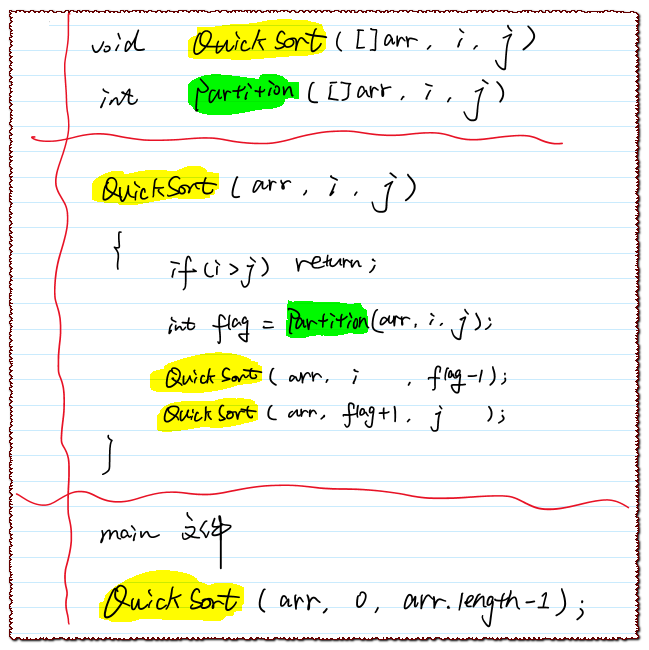 void QuickSort ( []arr, i, j )
int Partition ( []arr, i, j )
QuickSort ( arr, i, j )
{
if(i>j) return;
int flag = Partition(arr, i, j);
QuickSort ( arr, i , flag-1);
QuickSort ( arr, flag+1, j );
}
main 文件
QuickSort ( arr, 0, arr.length-1);